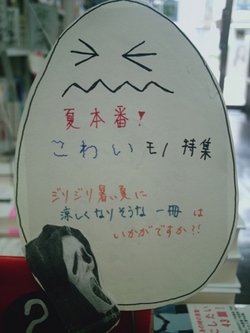 夏本番!
こわいモノ特集
ジリジリ暑い夏に
涼しくなりそうな一冊は
いかがですか?!
?